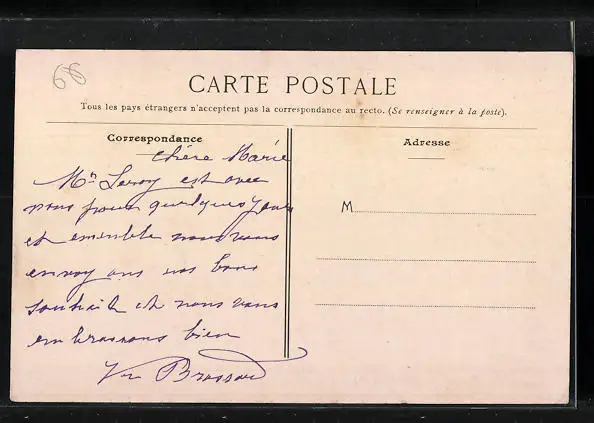 68
CARTE POSTALE
Tous les pays étrangers n'acceptent pas la correspondance au recto. (Se renseigner à la poste).
Correspondance
chère Marie
Mʳ Leroy est avec
nous pour quelques jours
et ensemble nous vous
envoy ons nos bons
souhait et nous vous
embrassons bien
Vᵉ Brossard
Adresse
M